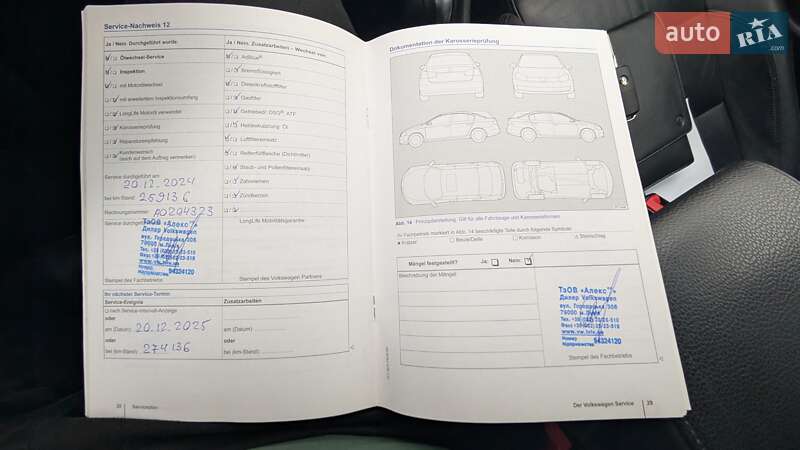 Service-Nachweis 12
Ja / Nein Durchgeführt wurde:
Ölwechsel-Service
Inspektion
mit Motorölwechsel
mit erweitertem Inspektionsumfang
LongLife Motoröl verwendet
Karosserieprüfung
Reparaturempfehlung
Kundenwunsch
(siehe auf dem Auftrag vermerkten)
Service durchgeführt am:
20.12.2024
bei km-Stand: 259136
Rechnungsnummer: A0204323
Service durchgeführt
ТзОВ «Алекс»
Дилер Volkswagen
вул. Городоцька, 306
79000 м. Львів
www.vw.lviv.ua
Номер
підприємства 94324120
Stempel des Fachbetriebs
Ja / Nein Zusatzarbeiten – Wechsel von:
AdBlue®
Bremsflüssigkeit
Dieselkraftstofffilter
Gasfilter
Getriebeöl: DSG®, ATF
Luftfiltereinsatz
Reifenfüllflasche (Dichtmittel)
Staub- und Pollenfiltereinsatz
Zahnriemen
Zündkerzen
LongLife Mobilitätsgarantie
Stempel des Volkswagen Partners
Ihr nächster Service-Termin:
Service-Ereignis
Zusatzarbeiten
nach Service-Intervall-Anzeige
oder
am (Datum): 20.12.2025
am (Datum):
oder
oder
bei (km-Stand): 274136
bei (km-Stand):
Serviceplan
Dokumentation der Karosserieprüfung
Abb. 14 Prinzipdarstellung: Gilt für alle Fahrzeuge und Karosserieformen.
Ihr Fachbetrieb markiert in Abb. 14 beschädigte Teile durch folgende Symbole:
× Kratzer
○ Beule/Delle
□ Korrosion
△ Steinschlag
Mängel festgestellt?
Ja:
Nein:
Beschreibung der Mängel:
ТзОВ «Алекс»
Дилер Volkswagen
вул. Городоцька, 306
79000 м. Львів
www.vw.lviv.ua
Номер
підприємства 94324120
Stempel des Fachbetriebs
Der Volkswagen Service
29
auto RIA .com